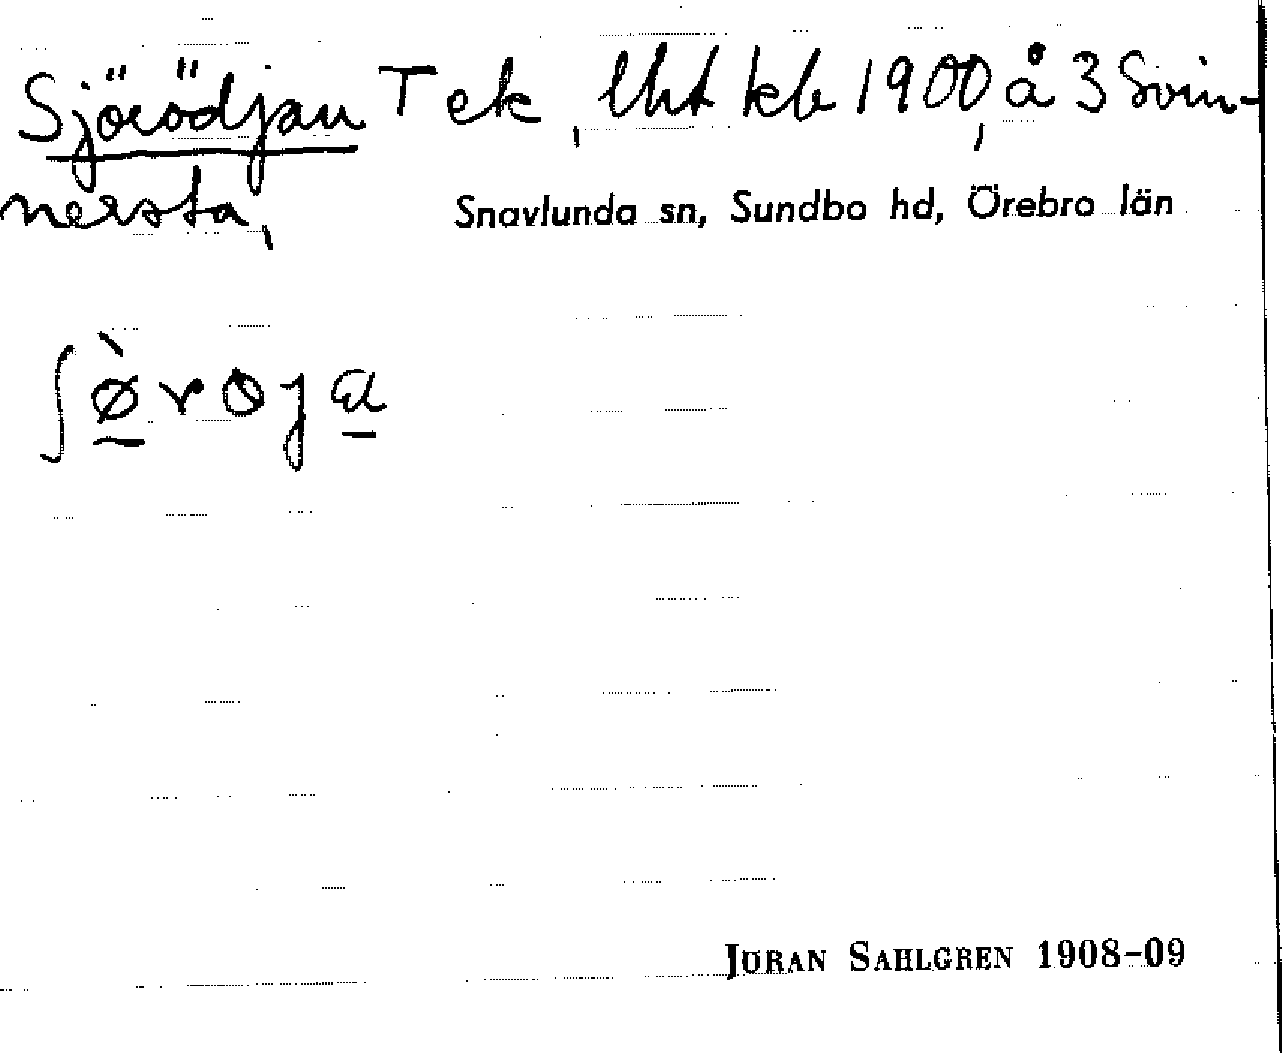 Sjörödjan T ek, lht kb 1900, å 3 Svin-
nersta,
Snavlunda sn, Sundbo hd, Örebro län
ʃø̀rɵja
JÖRAN SAHLGREN 1908-09